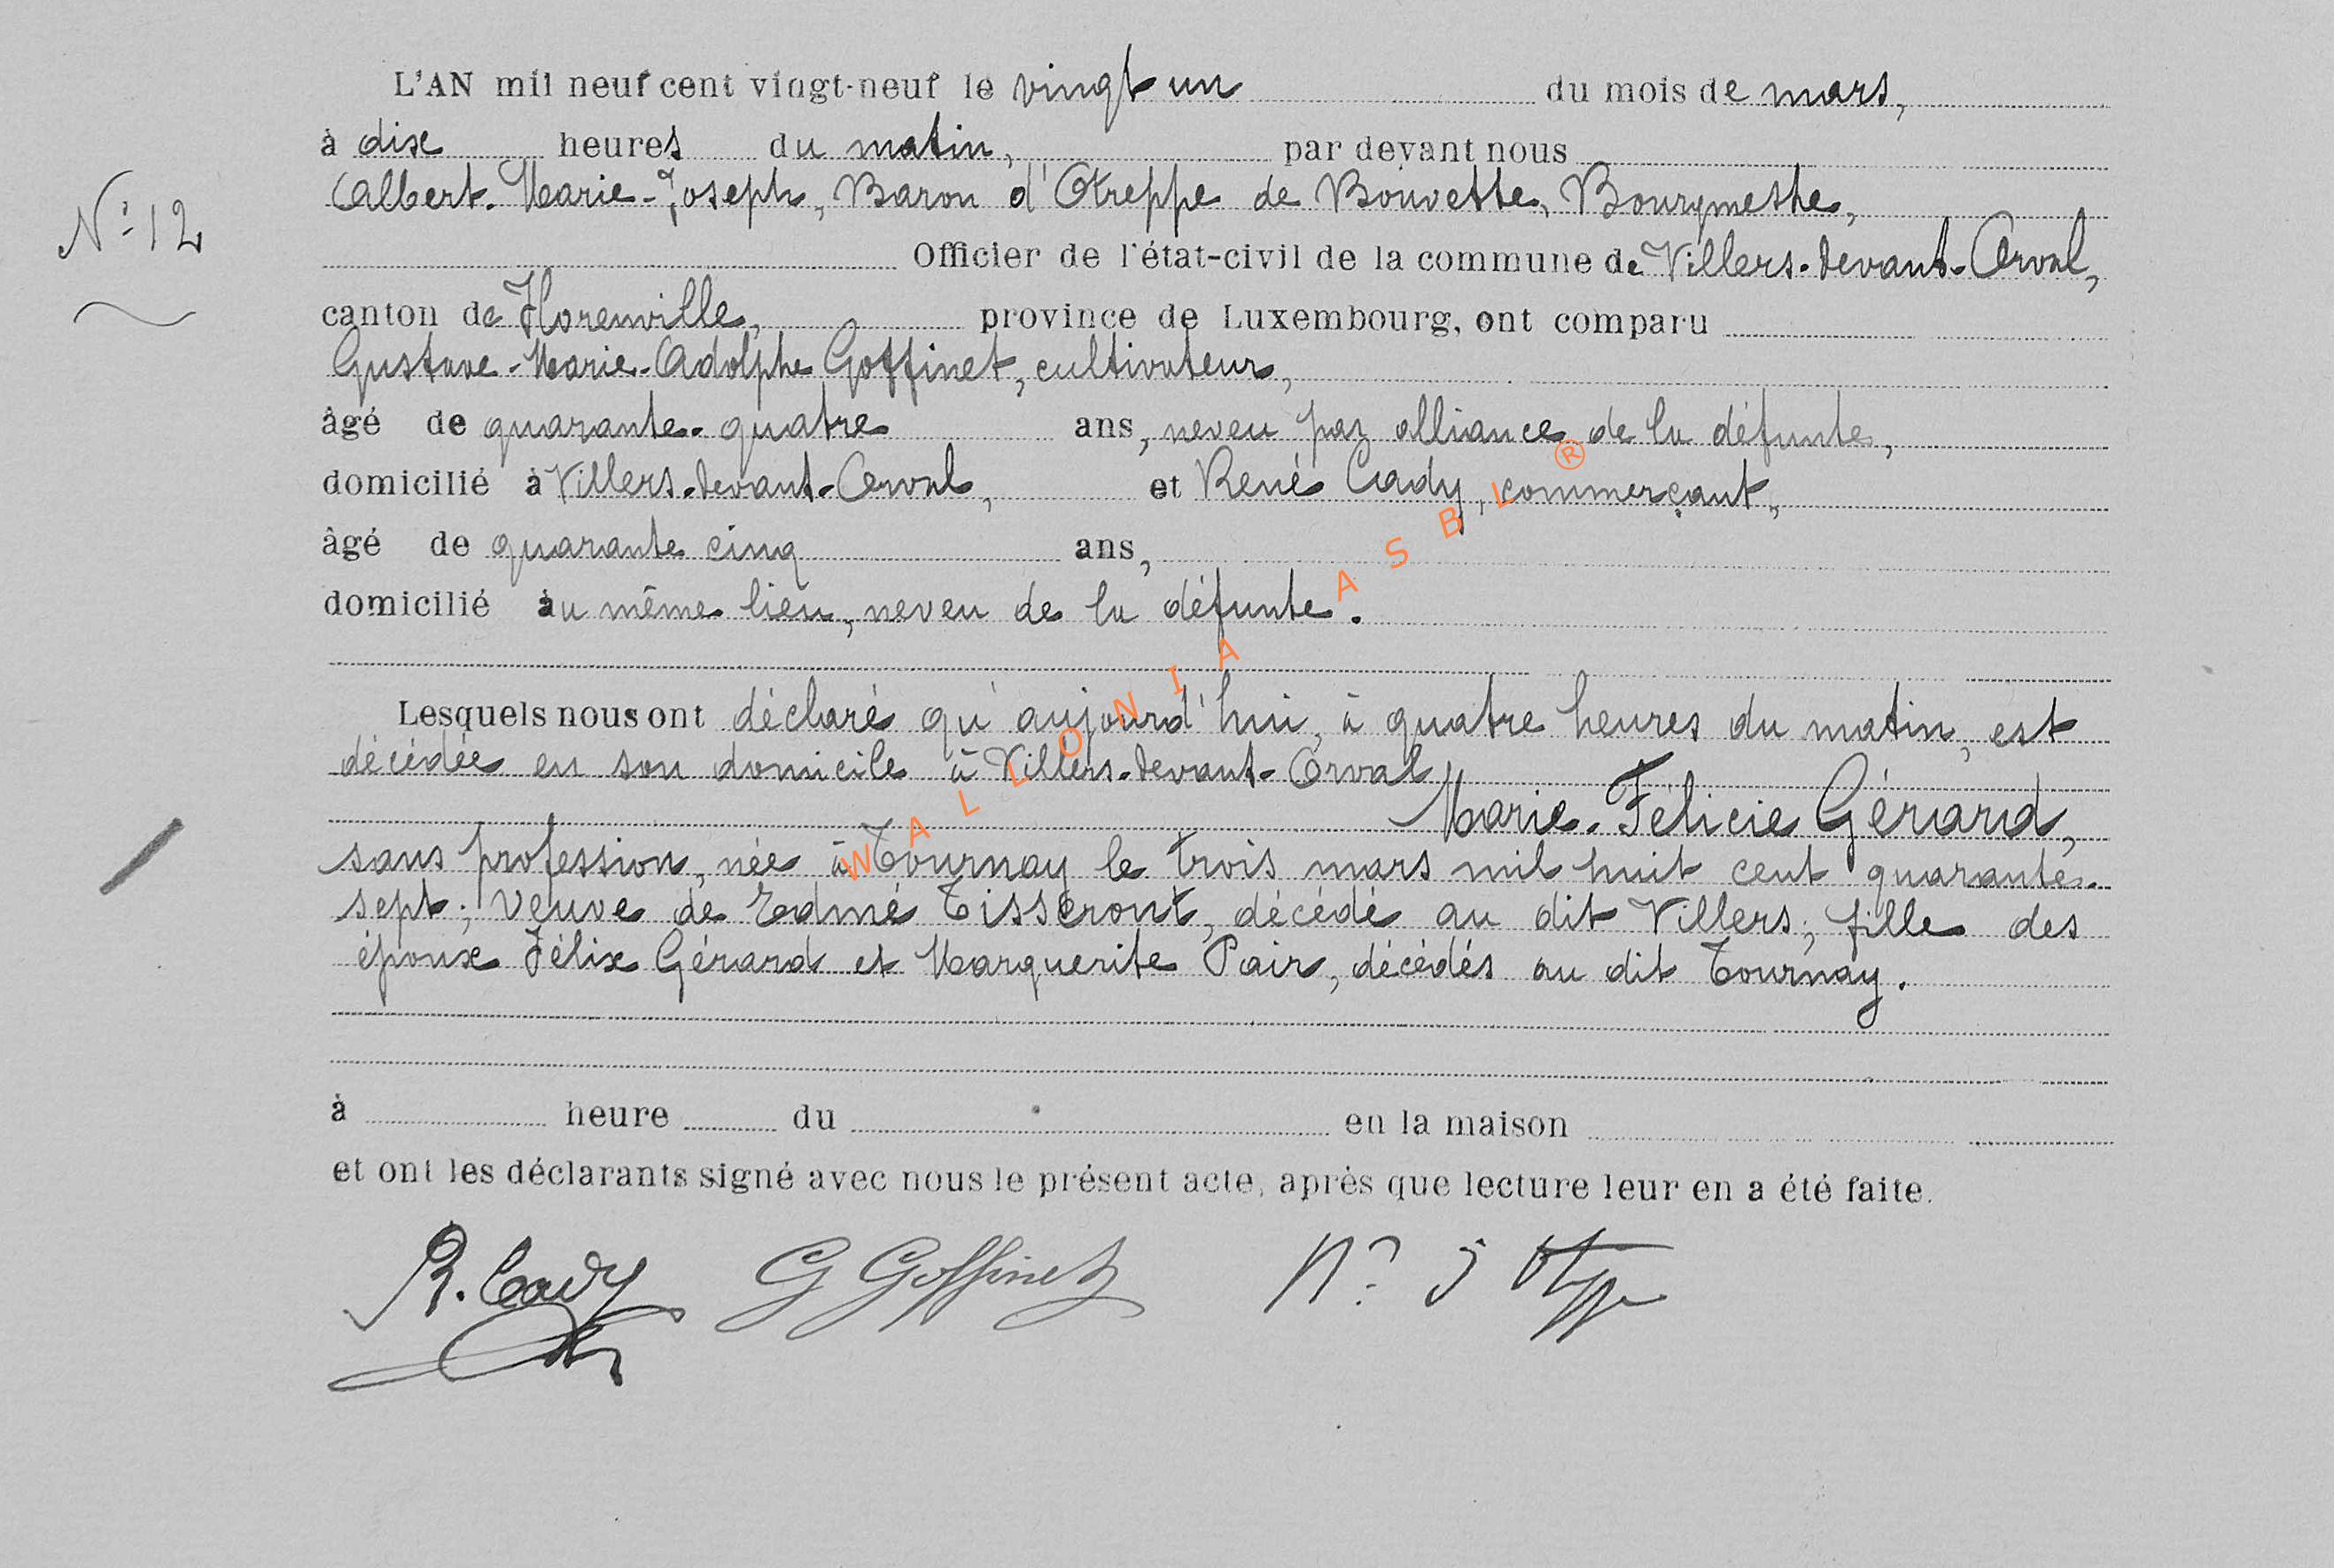 L'AN mil neuf cent vingt-neuf le vingt un du mois de mars,
à dix heures du matin, par devant nous
N° 12
Albert-Marie-Joseph, Baron d'Otreppe de Bouvette, Bourgmestre,
Officier de l'état-civil de la commune de Villers-devant-Orval,
canton de Florenville, province de Luxembourg, ont comparu
Gustave-Marie-Adolphe Goffinet, cultivateur,
âgé de quarante-quatre ans, neveu par alliance de la défunte,
domicilié à Villers-devant-Orval, et René Cady, commerçant,
âgé de quarante cinq ans,
domicilié au même lieu, neveu de la défunte.
Lesquels nous ont déclaré qu'aujourd'hui, à quatre heures du matin, est
décédée en son domicile à Villers-devant-Orval
Marie-Félicie Gérard,
sans profession, née à Tournay le trois mars mil huit cent quarante-
sept; veuve de Edmé Tisseront, décédé au dit Villers; fille des
époux Félix Gérard et Marguerite Pair, décédés au dit Tournay.
à heure du en la maison
et ont les déclarants signé avec nous le présent acte, après que lecture leur en a été faite.
R. Cady G Goffinet
WALLONIA ASBL ®